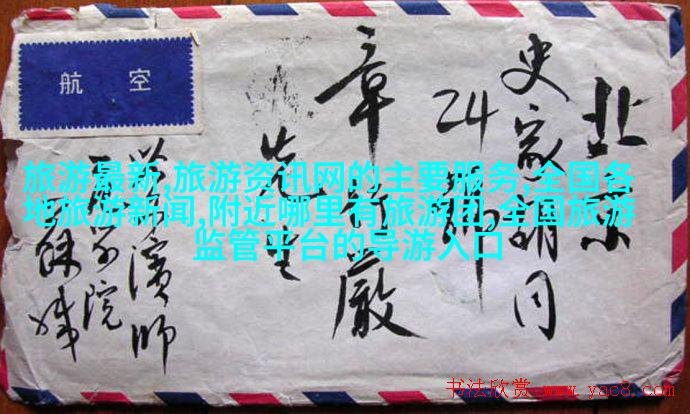 航空
北京
史家胡同
24
章行嚴
先生
濱師
院
旅游最新,旅游资讯网的主要服务,全国各
地旅游新闻,附近哪里有旅游团,全国旅游
监管平台的导游入口
书法欣赏 www.yac8.com